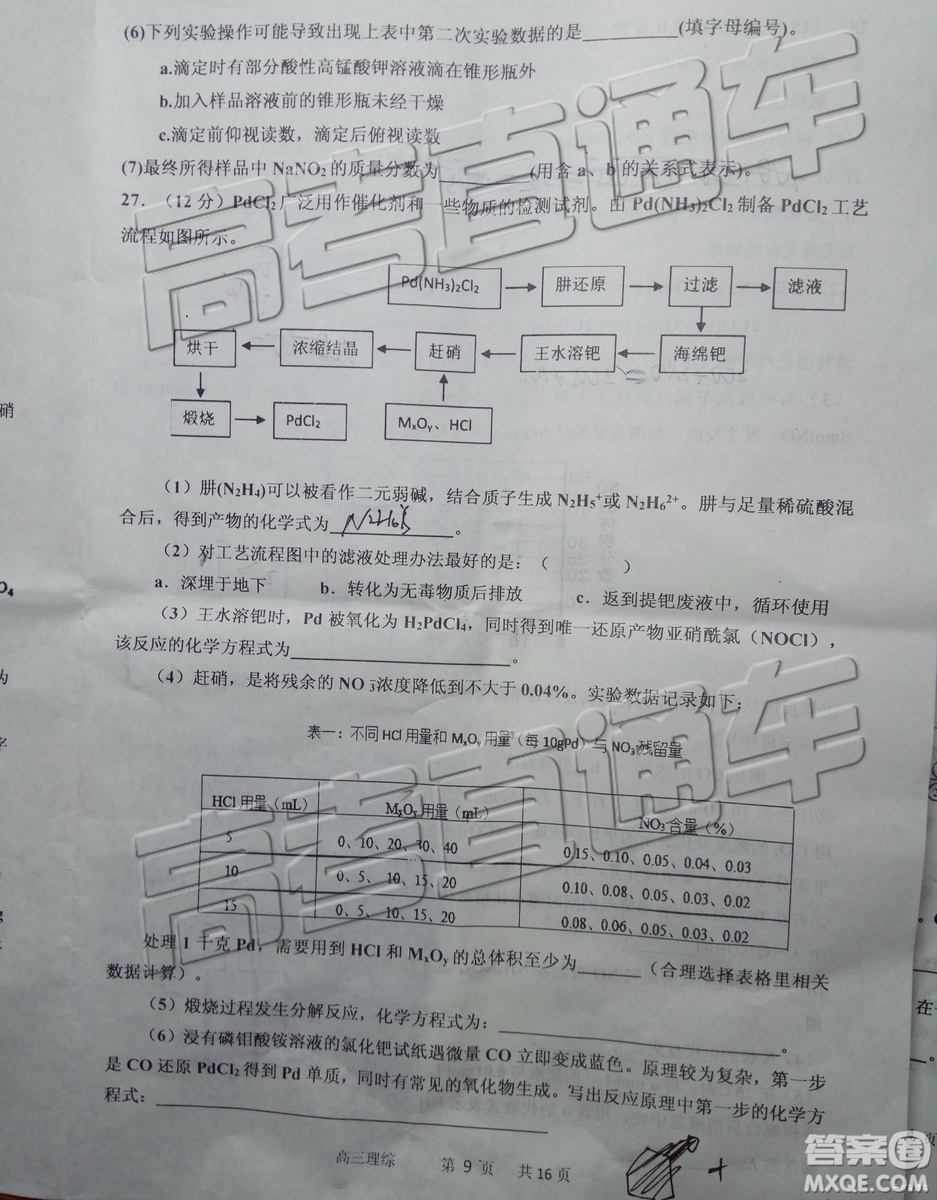 (6)下列实验操作可能导致出现上表中第二次实验数据的是________(填字母编号)。
a.滴定时有部分酸性高锰酸钾溶液滴在锥形瓶外
b.加入样品溶液前的锥形瓶未经干燥
c.滴定前仰视读数，滴定后俯视读数
(7)最终所得样品中NaNO₂的质量分数为________(用含a、b的关系式表示)。
27．（12分）PdCl₂广泛用作催化剂和一些物质的检测试剂。由Pd(NH₃)₂Cl₂制备PdCl₂工艺
流程如图所示。
Pd(NH₃)₂Cl₂ 肼还原 过滤 滤液
烘干 浓缩结晶 赶硝 王水溶钯 海绵钯
煅烧 PdCl₂ MₓOᵧ、HCl
硝
（1）肼(N₂H₄)可以被看作二元弱碱，结合质子生成N₂H₅⁺或N₂H₆²⁺。肼与足量稀硫酸混
合后，得到产物的化学式为________。
（2）对工艺流程图中的滤液处理办法最好的是：（ ）
a．深埋于地下 b．转化为无毒物质后排放 c．返到提钯废液中，循环使用
（3）王水溶钯时，Pd被氧化为H₂PdCl₄，同时得到唯一还原产物亚硝酰氯（NOCl），
该反应的化学方程式为________。
（4）赶硝，是将残余的NO₃⁻浓度降低到不大于0.04%。实验数据记录如下：
表一：不同HCl用量和MₓOᵧ用量（每10gPd）与NO₃残留量
HCl用量（mL） MₓOᵧ用量（mL） NO₃含量（%）
5 0、10、20、30、40 0.15、0.10、0.05、0.04、0.03
10 0、5、10、15、20 0.10、0.08、0.05、0.03、0.02
15 0、5、10、15、20 0.08、0.06、0.05、0.03、0.02
处理1千克Pd，需要用到HCl和MₓOᵧ的总体积至少为______（合理选择表格里相关
数据计算）。
（5）煅烧过程发生分解反应，化学方程式为：________。
（6）浸有磷钼酸铵溶液的氯化钯试纸遇微量CO立即变成蓝色。原理较为复杂，第一步
是CO还原PdCl₂得到Pd单质，同时有常见的氧化物生成。写出反应原理中第一步的化学方
程式：________
高三理综 第 9 页 共16页
高考直通车
高考直通车
答案圈
MXQE.COM